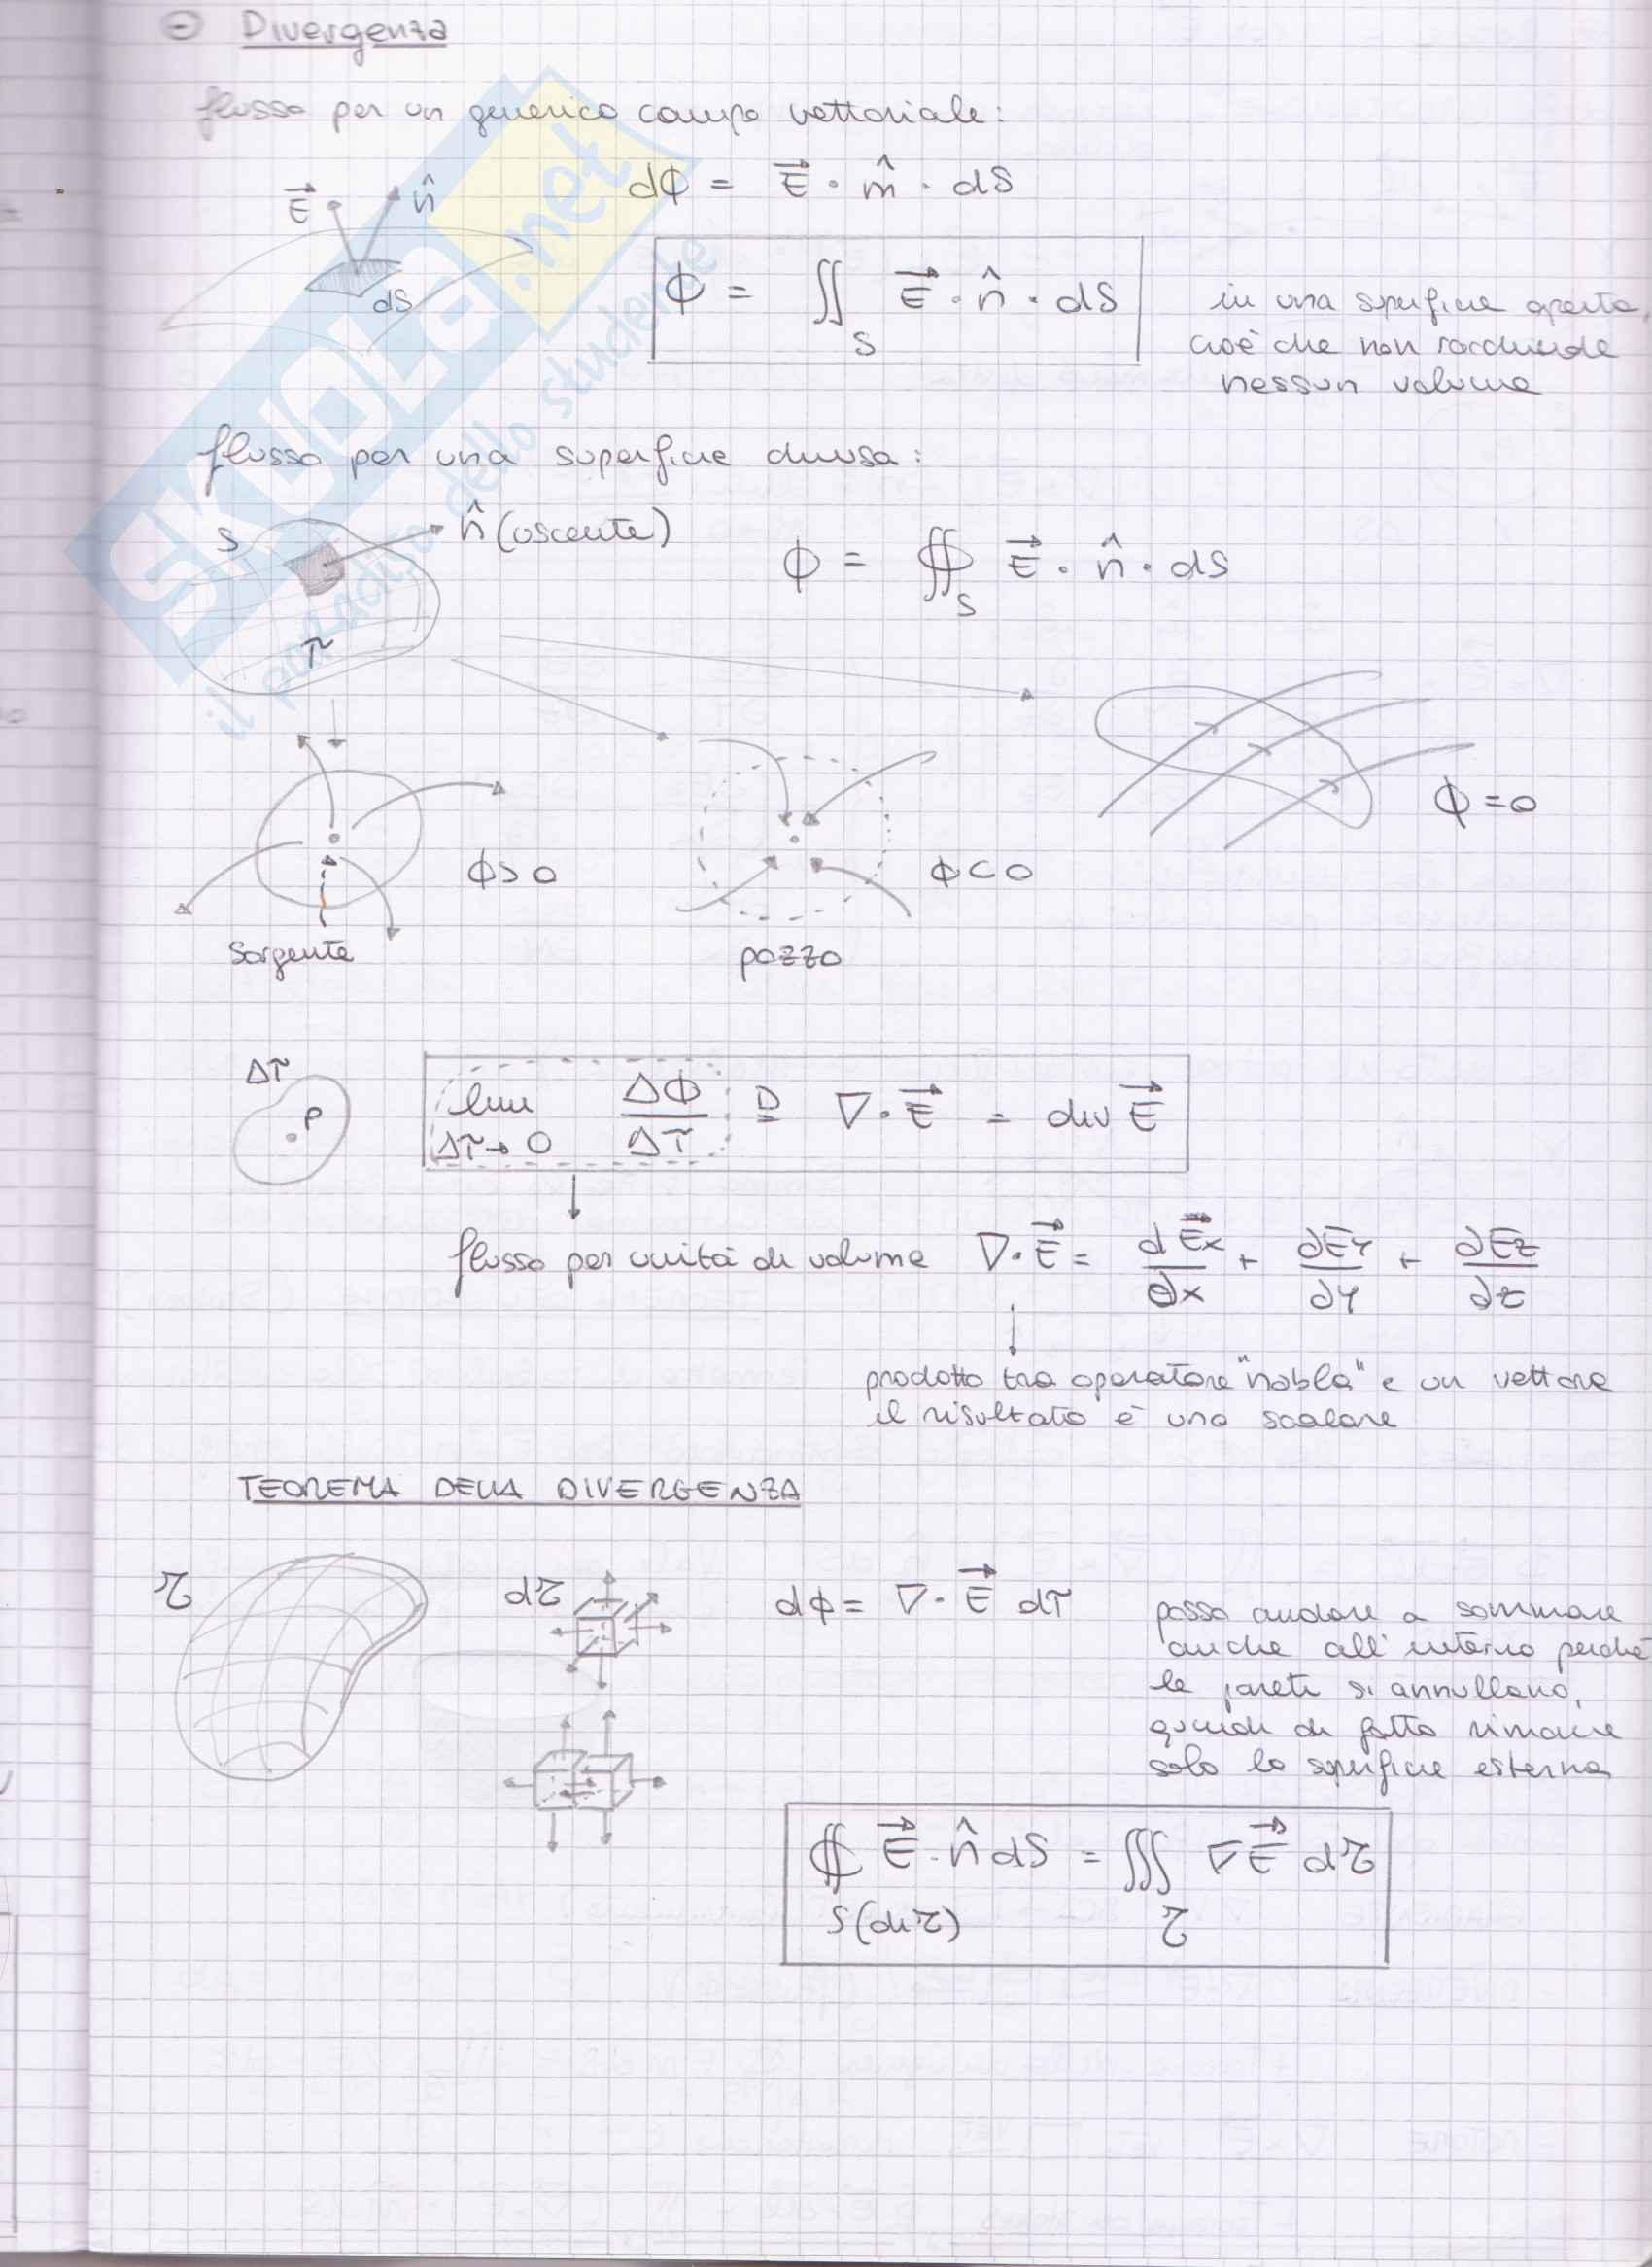 ⊖ Divergenza
flusso per un generico campo vettoriale:
E⃗ n̂ dS
dϕ = E⃗ · m̂ · dS
ϕ = ∬_S E⃗ · n̂ · dS
in una superficie aperta,
cioè che non racchiude
nessun volume
flusso per una superficie chiusa:
S n̂ (uscente) τ
ϕ = ∯_S E⃗ · n̂ · dS
ϕ = 0
ϕ > 0
ϕ < 0
Sorgente
pozzo
Δτ P
lim Δτ→0 Δϕ/Δτ ≝ ∇·E⃗ = div E⃗
flusso per unità di volume ∇·E⃗ = dE⃗x/∂x + ∂Ey/∂y + ∂Ez/∂z
prodotto tra operatore "nabla" e un vettore
il risultato è uno scalare
TEOREMA DELLA DIVERGENZA
τ dτ
dϕ = ∇·E⃗ dτ
posso andare a sommare
anche all'interno perché
le pareti si annullano,
quindi di fatto rimane
solo la superficie esterna
∯_S(di τ) E⃗ · n̂ dS = ∭_τ ∇E⃗ dτ
SKUOLA.net
il paradiso dello studente